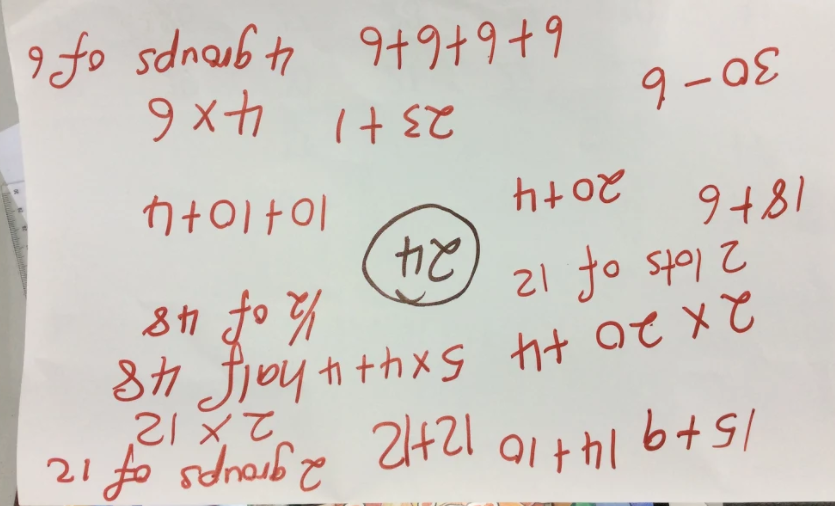 15+9 14+10 12+12 2 groups of 12
2 × 12
2 × 20 +4 5×4+4 half 48
2 lots of 12 ½ of 48
18+6 20+4 24 10+10+4
23+1 4×6
30-6 6+6+6+6 4 groups of 6